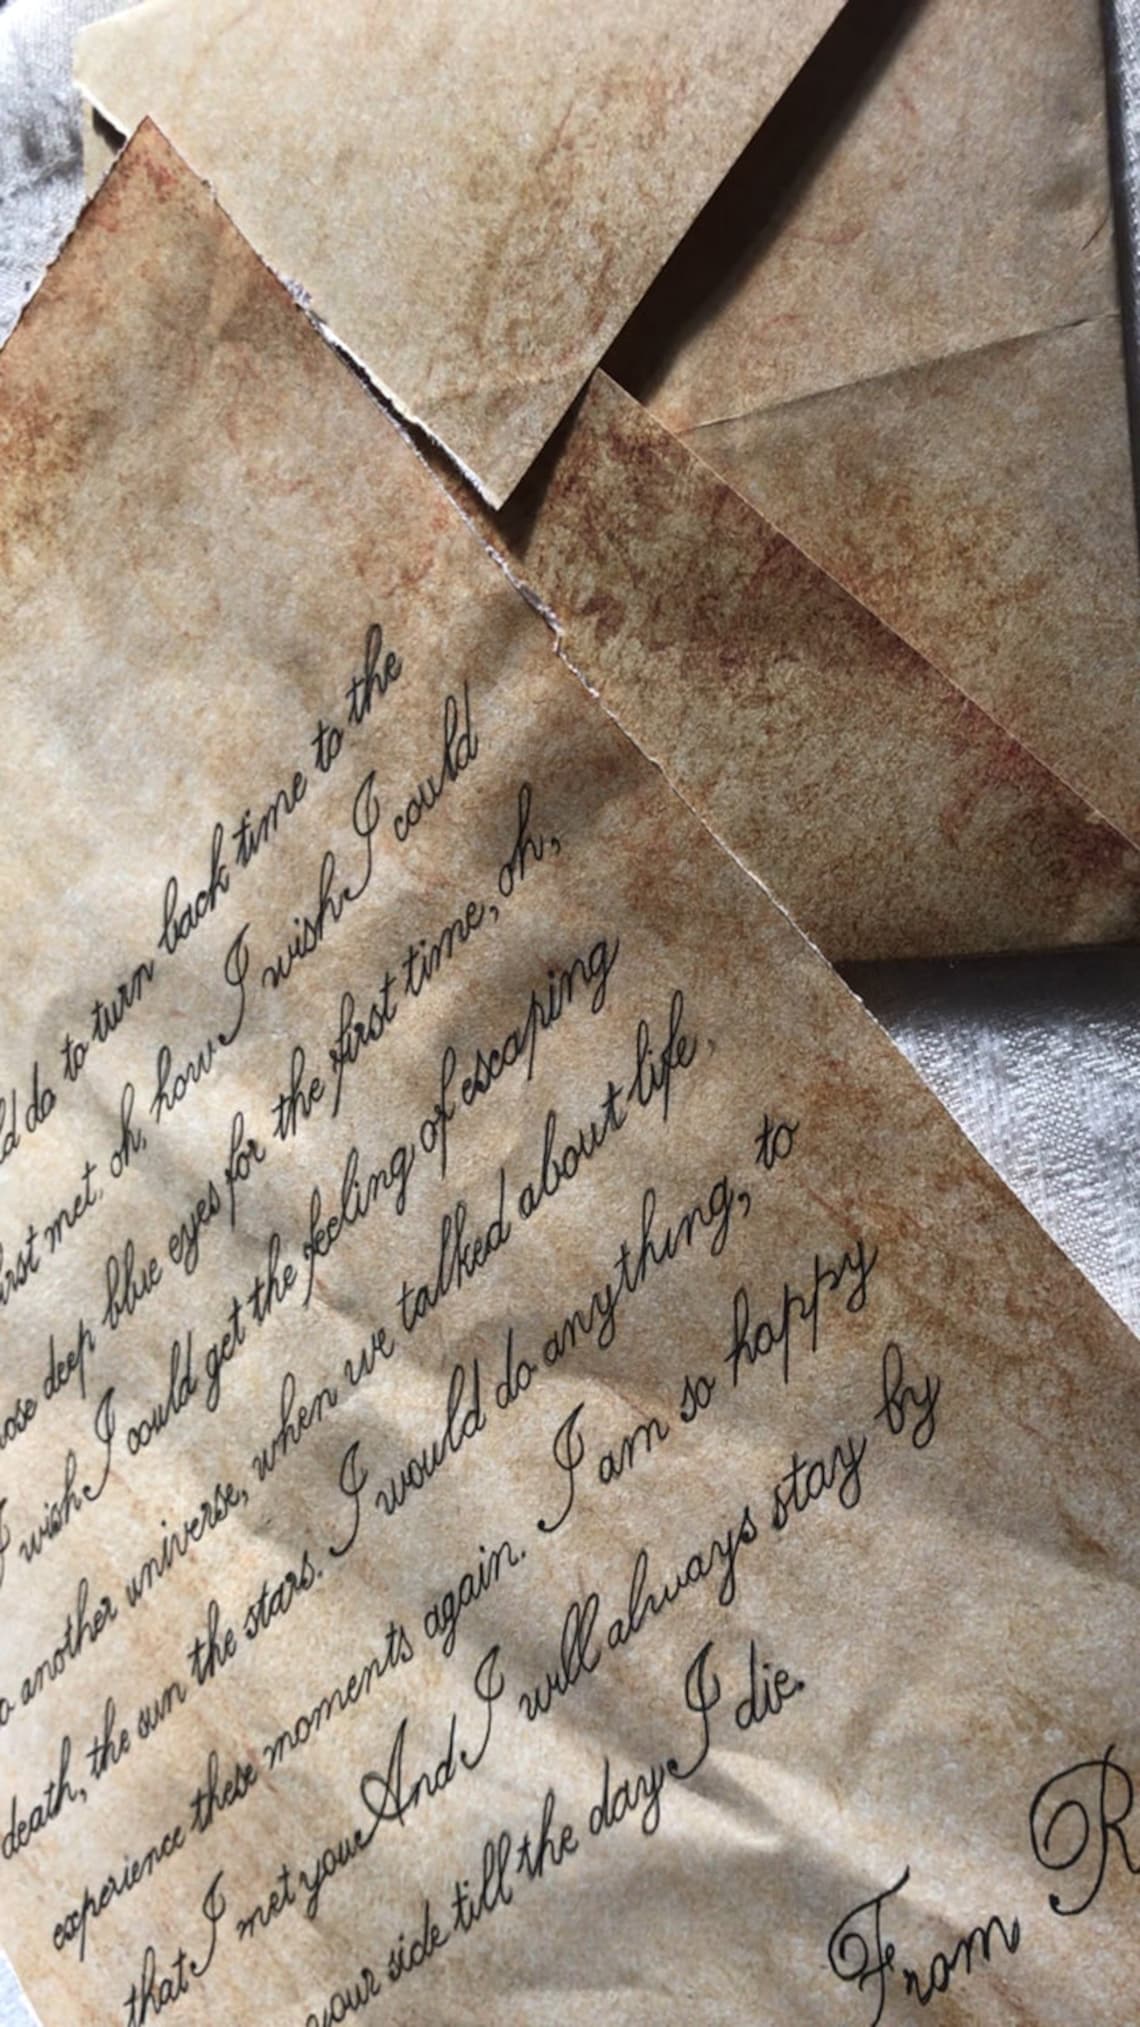 do to turn back time to the
first met. oh, how I wish I could
those deep blue eyes for the first time, oh,
I wish I could get the feeling of escaping
to another universe, when we talked about life,
death, the sun the stars. I would do anything, to
experience these moments again. I am so happy
that I met you And I will always stay by
your side till the day I die.
From R